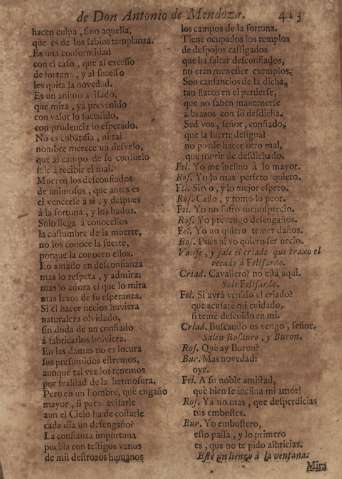 de Don Antonio de Mendoza. 423
hacen culpa, sino aquella,
que es de los sabios templanza.
Es una conformidad
con el caso, que al excesso
de fortuna, y al sucesso
les quita la novedad.
Es un animo
que mira, ya prevenido
con valor lo sucedido,
con prudencia lo esperado.
No es cobardia, ni tal
nombre merece un desvelo,
que al campo de su consuelo
sale à recibir el mal.
Mueren los desconfiados
de animosos, que antes es
el vencerse à si, y despues
à la fortuna, y los hados.
Solo llega à conocellos
la costumbre de la muerte,
no los conoce la suerte,
porque la corren ellos.
Lo amado en desconfianza
mas lo respeta, y admira,
mas lo adora el que lo mira
mas lexos de su esperanza.
Si el hacer necios huviera
naturaleza olvidado,
sin duda de un confiado
à fabricarlos bolviera.
En las damas no es locura
los presumidos estremos,
aunque tal vez los tenemos
por fealdad de la hermosura.
Pero en un hombre, què engaño
mayor, si para avisarle
aun el Cielo ha de costarle
cada dia un desengaño?
La confianza importuna
puebla con testigos vanos
de mil destrozos humanos
los campos de la fortuna.
Tiene ocupados los templos
de despojos castigados
que ha faltar desconfiados,
no eran menester exemplos.
Son cansancios de la dicha,
tan flacos en el perderse,
que no saben mantenerse
à brazos con la desdicha.
Sed vos, señor, confiado,
que la suerte desigual
no puede hacer otro mal,
que morir de desdichado.
Fel. Yo me inclino à lo mayor.
Ros. Yo lo mas perfeto quiero.
Fel. Sirvo, y lo mejor espero.
Ros. Callo, y tomo lo peor.
Fel. Yo no sufro
Ros. Yo prevengo desengaños.
Fel. Yo no quiero temer daños.
Ros. Pues yo no quiero ser necio.
Vanse, y sale el criado que traxo el
recado à Felisardo.
Criad. Cavallero? no està aqui.
Sale Felisardo.
Fel. Si avrà venido el criado?
que acusarè mi cuidado,
si teme descuido en mi.
Criad. Buscando os vengo, señor.
Salen Rosauro, y Buron.
Ros. Què ay Buron?
Bur. Mas novedad:
oye.
Fel. A su noble amistad,
què bien se inclina mi amor!
Ros. Ya no mas, que desperdicias
tus embustes.
Bur. Yo embustero,
esso passa, y lo primero
es, que no te pido albricias.
Està un lienzo à la ventana.
Mira